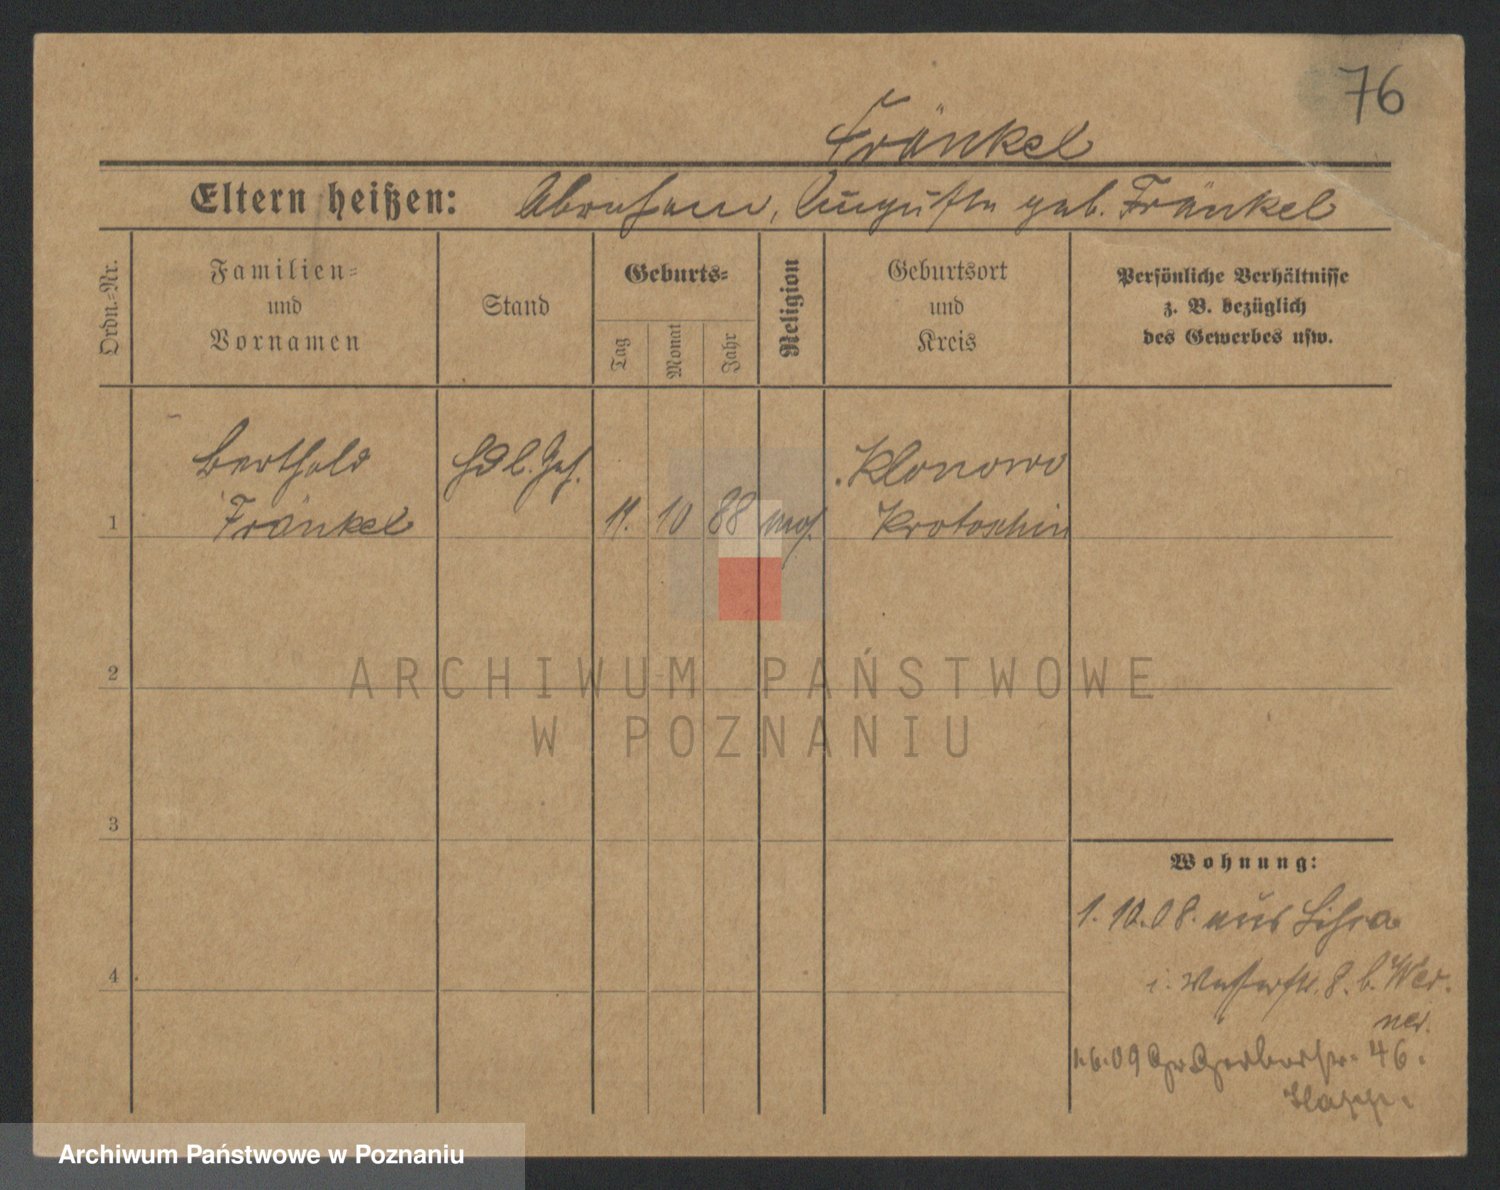 76
Fränkel
Eltern heißen: Abraham, Auguste geb. Fränkel
Ordn.=Nr.
Familien=
und
Vornamen
Stand
Geburts=
Tag
Monat
Jahr
Religion
Geburtsort
und
Kreis
Persönliche Verhältnisse
z. B. bezüglich
des Gewerbes usw.
Berthold Hdl. Geh. Klonowo
1 Fränkel 11. 10 88 mos. Krotoschin
2
ARCHIWUM PAŃSTWOWE
W POZNANIU
3
Wohnung:
1. 10. 08. aus
4
i. Wasserstr. 8. b. Wer-
ner.
09 Gr Gerberstr. 46.
Archiwum Państwowe w Poznaniu